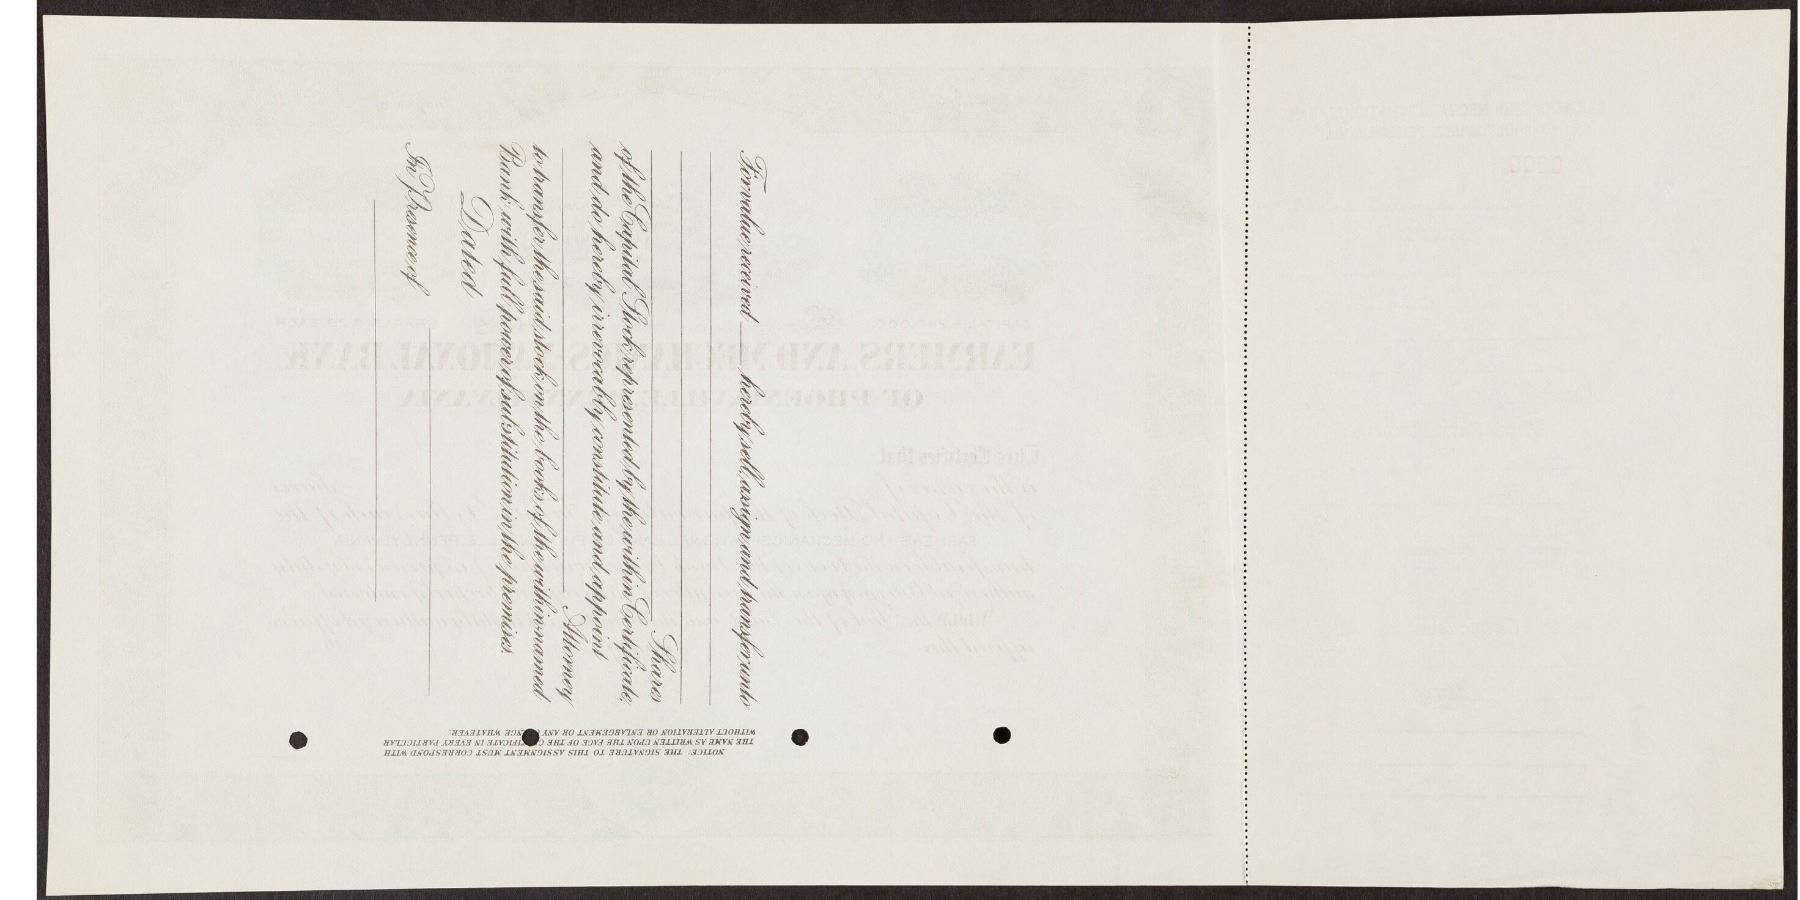 For value received hereby sell, assign and transfer unto
Shares
of the Capital Stock represented by the within Certificate,
and do hereby irrevocably constitute and appoint
Attorney
to transfer the said stock on the books of the within-named
Bank with full power of substitution in the premises.
Dated
In Presence of
NOTICE: THE SIGNATURE TO THIS ASSIGNMENT MUST CORRESPOND WITH
THE NAME AS WRITTEN UPON THE FACE OF THE CERTIFICATE IN EVERY PARTICULAR
WITHOUT ALTERATION OR ENLARGEMENT OR ANY CHANGE WHATEVER.
FARMERS AND MECHANICS-NATIONAL BANK
OF PHOENIXVILLE, PENNSYLVANIA
This Certifies that
FARMERS AND MECHANICS-NATIONAL BANK OF PHOENIXVILLE, PENNSYLVANIA